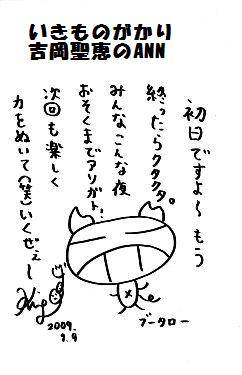 いきものがかり
吉岡聖恵のANN
初日ですよ〜もう
終ったらクタクタ。
みんなこんな夜
おそくまでアリガト!
次回も楽しく
力をぬいて(笑)いくぜぇー
ブータロー
2009.
9.9